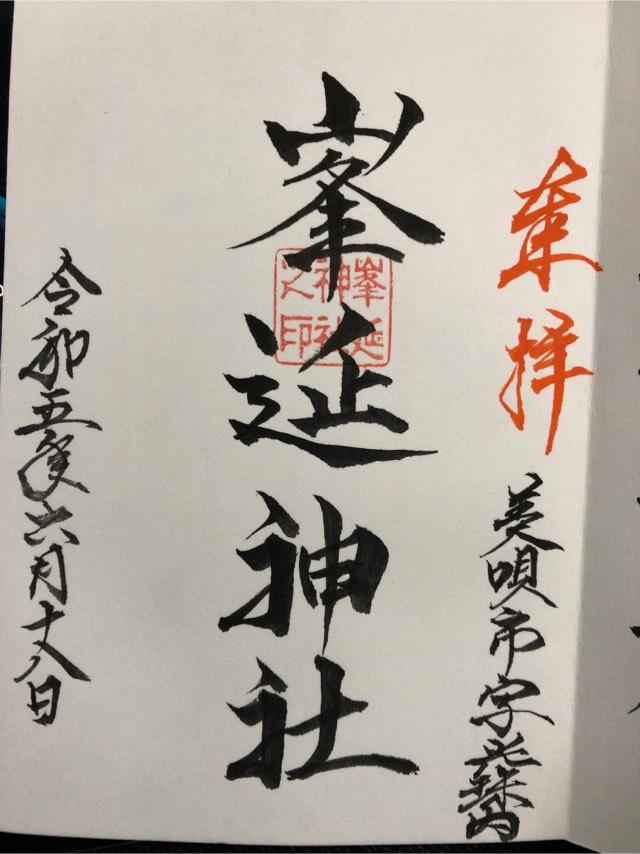 奉拝
美唄市字光珠内
峯延神社
峯延
神社
之印
令和五年六月十八日